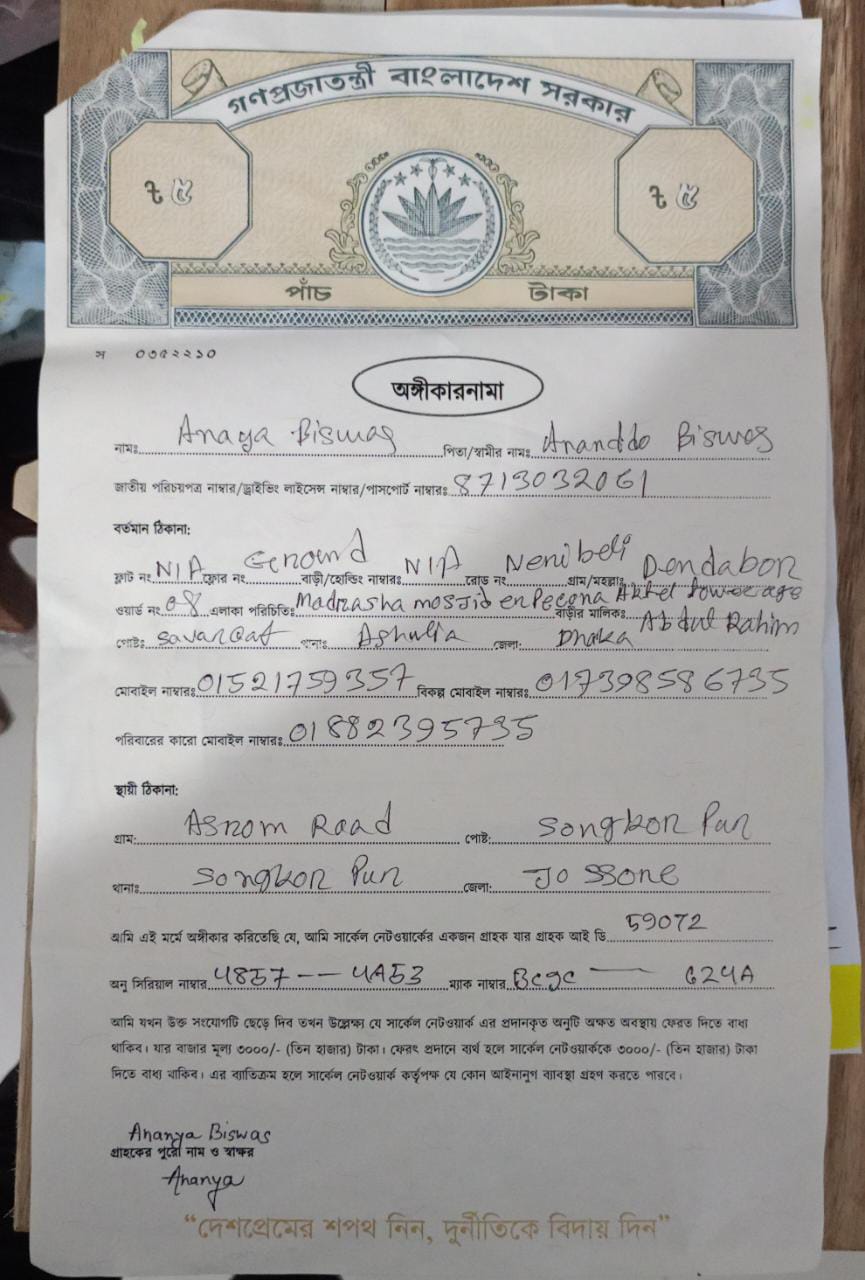 গণপ্রজাতন্ত্রী বাংলাদেশ সরকার
৳ ৫ ৳ ৫
পাঁচ টাকা
স ০৩৫২২১০
অঙ্গীকারনামা
নামঃ Anaya Biswas পিতা/স্বামীর নামঃ Ananddo Biswas
জাতীয় পরিচয়পত্র নাম্বার/ড্রাইভিং লাইসেন্স নাম্বার/পাসপোর্ট নাম্বারঃ 8713032061
বর্তমান ঠিকানা:
ফ্লাট নং N/A ফ্লোর নং Geround বাড়ী/হোল্ডিং নাম্বারঃ N/A রোড নং গ্রাম/মহল্লাঃ Dendabor
ওয়ার্ড নং 08 এলাকা পরিচিতিঃ Madrasha mosjid বাড়ীর মালিকঃ Abdul Rahim
পোষ্টঃ থানাঃ Ashulia জেলা: Dhaka
মোবাইল নাম্বারঃ 01521759357 বিকল্প মোবাইল নাম্বারঃ 017398586735
পরিবারের কারো মোবাইল নাম্বারঃ 01882395735
স্থায়ী ঠিকানা:
গ্রাম: Asrom Road পোষ্ট: Songkor Pur
থানাঃ Songkor Pur জেলা: Jo ssore
আমি এই মর্মে অঙ্গীকার করিতেছি যে, আমি সার্কেল নেটওয়ার্কের একজন গ্রাহক যার গ্রাহক আই ডি 59072
অনু সিরিয়াল নাম্বার 4857 -- 4A53 ম্যাক নাম্বার Bcgc — 624A
আমি যখন উক্ত সংযোগটি ছেড়ে দিব তখন উল্লেক্ষ্য যে সার্কেল নেটওয়ার্ক এর প্রদানকৃত অনুটি অক্ষত অবস্থায় ফেরত দিতে বাধ্য
থাকিব। যার বাজার মূল্য ৩০০০/- (তিন হাজার) টাকা। ফেরৎ প্রদানে ব্যর্থ হলে সার্কেল নেটওয়ার্ককে ৩০০০/- (তিন হাজার) টাকা
দিতে বাধ্য থাকিব। এর ব্যাতিক্রম হলে সার্কেল নেটওয়ার্ক কর্তৃপক্ষ যে কোন আইনানুগ ব্যাবস্থা গ্রহণ করতে পারবে।
Ananya Biswas
গ্রাহকের পুরো নাম ও স্বাক্ষর
Ananya
“দেশপ্রেমের শপথ নিন, দুর্নীতিকে বিদায় দিন”